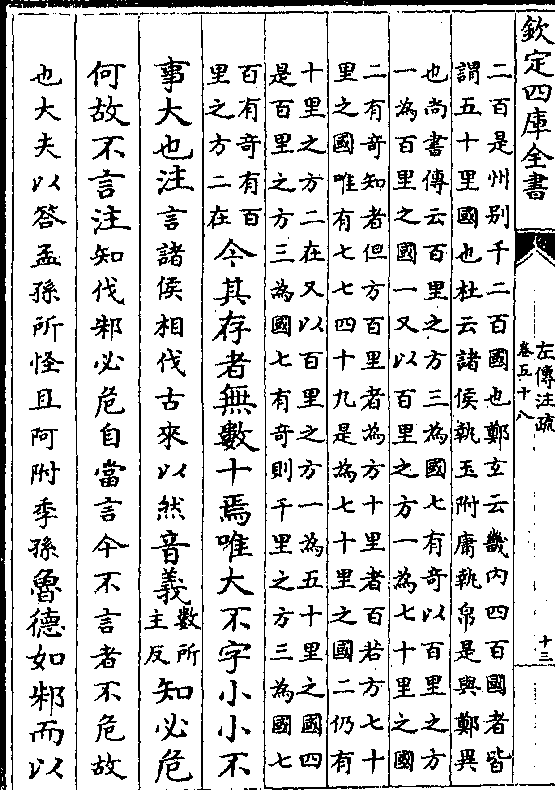 欽定四庫全書
左傳注疏
卷五十八
十三
二百是州别千二百國也鄭玄云畿内四百國者皆
謂五十里國也杜云諸侯執玉附庸執帛是與鄭異
也尚書傳云百里之方三為國七有奇以百里之方
一為百里之國一又以百里之方一為七十里之國
二有奇知者但方百里者為方十里者百若方七十
里之國唯有七七四十九是為七十里之國二仍有
十里之方二在又以百里之方一為五十里之國四
是百里之方三為國七有奇則千里之方三為國七
百有奇有百
里之方二在
今其存者無數十焉唯大不字小小不
事大也注言諸侯相伐古來以然音義數所主反知必危
何故不言注知伐邾必危自當言今不言者不危故
也大夫以答孟孫所怪且阿附季孫魯德如邾而以